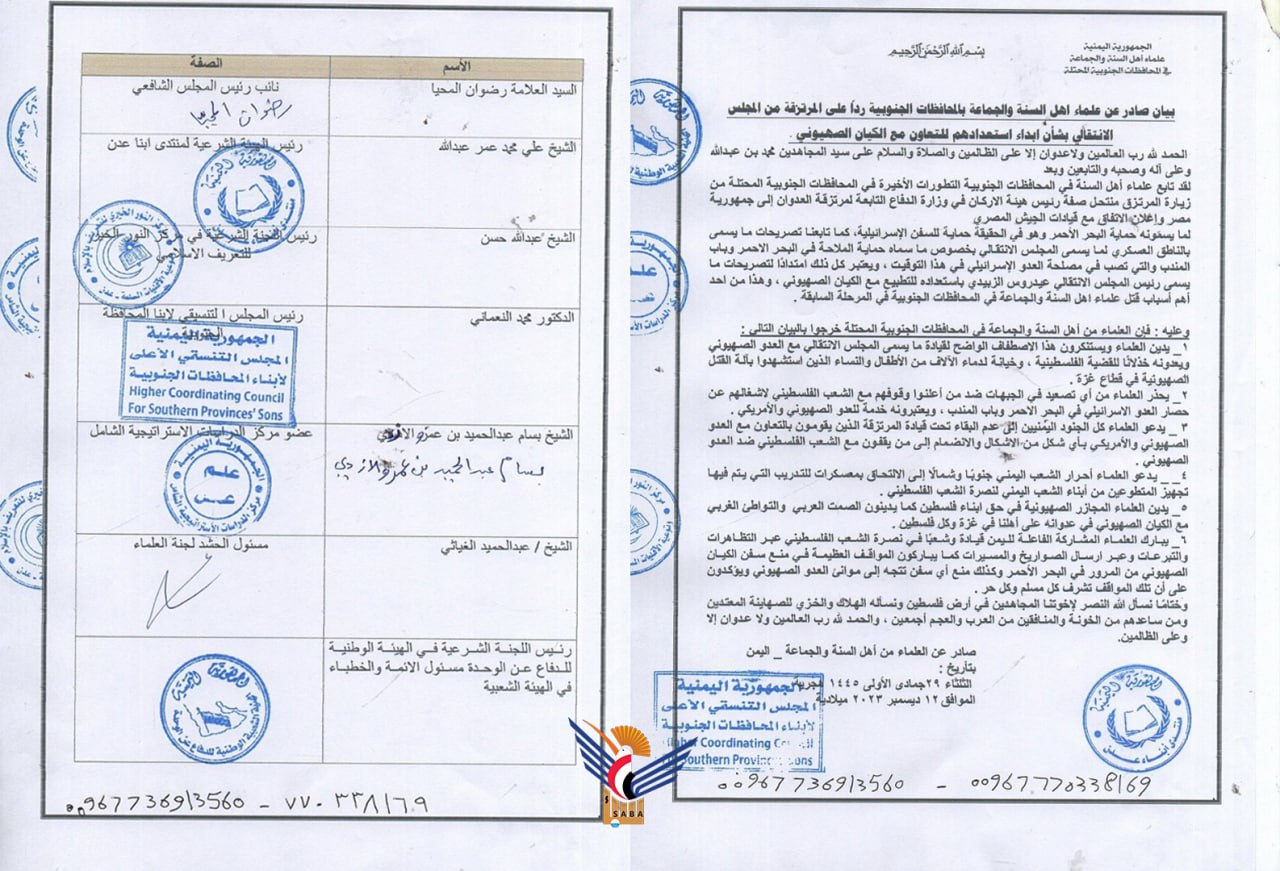 الجمهورية اليمنية
علماء أهل السنة والجماعة
في المحافظات الجنوبية المحتلة
بسم الله الرحمن الرحيم
بيان صادر عن علماء اهل السنة والجماعة بالمحافظات الجنوبية رداً على المرتزقة من المجلس
الانتقالي بشأن ابداء استعدادهم للتعاون مع الكيان الصهيوني .
الحمد لله رب العالمين ولاعدوان إلا على الظالمين والصلاة والسلام على سيد المجاهدين محمد بن عبدالله
وعلى آله وصحبه والتابعين وبعد
لقد تابع علماء أهل السنة في المحافظات الجنوبية التطورات الأخيرة في المحافظات الجنوبية المحتلة من
زيارة المرتزق منتحل صفة رئيس هيئة الاركان في وزارة الدفاع التابعة لمرتزقة العدوان إلى جمهورية
مصر وإعلان الاتفاق مع قيادات الجيش المصري
لما يسمونه حماية البحر الأحمر وهو في الحقيقة حماية للسفن الإسرائيلية، كما تابعنا تصريحات ما يسمى
بالناطق العسكري لما يسمى المجلس الانتقالي بخصوص ما سماه حماية الملاحة في البحر الاحمر وباب
المندب والتي تصب في مصلحة العدو الإسرائيلي في هذا التوقيت ، ويعتبر كل ذلك امتدادًا لتصريحات ما
يسمى رئيس المجلس الانتقالي عيدروس الزبيدي باستعداده للتطبيع مع الكيان الصهيوني ، وهذا من احد
أهم أسباب قتل علماء اهل السنة والجماعة في المحافظات الجنوبية في المرحلة السابقة .
وعليه : فإن العلماء من أهل السنة والجماعة في المحافظات الجنوبية المحتلة خرجوا بالبيان التالي :
١_ يدين العلماء ويستنكرون هذا الاصطفاف الواضح لقيادة ما يسمى المجلس الانتقالي مع العدو الصهيوني
ويعدونه خذلانًا للقضية الفلسطينية ، وخيانة لدماء الآلاف من الأطفال والنساء الذين استشهدوا بآلة القتل
الصهيونية في قطاع غزة .
٢_ يحذر العلماء من أي تصعيد في الجبهات ضد من أعلنوا وقوفهم مع الشعب الفلسطيني لاشغالهم عن
حصار العدو الاسرائيلي في البحر الاحمر وباب المندب ، ويعتبرونه خدمة للعدو الصهيوني والأمريكي .
٣_ يدعو العلماء كل الجنود اليمنيين إلى عدم البقاء تحت قيادة المرتزقة الذين يقومون بالتعاون مع العدو
الصهيوني والأمريكي بأي شكل من الاشكال والانضمام إلى من يقفون مع الشعب الفلسطيني ضد العدو
الصهيوني .
٤_ _ يدعو العلماء أحرار الشعب اليمني جنوبًا وشمالًا إلى الالتحاق بمعسكرات للتدريب التي يتم فيها
تجهيز المتطوعين من أبناء الشعب اليمني لنصرة الشعب الفلسطيني .
٥_ يدين العلماء المجازر الصهيونية في حق ابناء فلسطين كما يدينون الصمت العربي والتواطئ الغربي
مع الكيان الصهيوني في عدوانه على أهلنا في غزة وكل فلسطين .
٦_ يبارك العلماء المشاركة الفاعلة لليمن قيادة وشعبًا في نصرة الشعب الفلسطيني عبر التظاهرات
والتبرعات وعبر ارسال الصواريخ والمسيرات كما يباركون المواقف العظيمة في منع سفن الكيان
الصهيوني من المرور في البحر الأحمر وكذلك منع أي سفن تتجه إلى موانئ العدو الصهيوني ويؤكدون
على أن تلك المواقف تشرف كل مسلم وكل حر .
وختامًا نسأل الله النصر لإخوتنا المجاهدين في أرض فلسطين ونسأله الهلاك والخزي للصهاينة المعتدين
ومن ساعدهم من الخونة والمنافقين من العرب والعجم أجمعين ، والحمد لله رب العالمين ولا عدوان إلا
وعلى الظالمين.
صادر عن العلماء من أهل السنة والجماعة _ اليمن
بتاريخ :
الثلثاء ٢٩جمادى الأولى ١٤٤٥ هجرية
الموافق ١٢ ديسمبر ٢٠٢٣ ميلادية
الجمهورية اليمنية
المجلس التنسيقي الأعلى
لأبناء المحافظات الجنوبية
Higher Coordinating Council
Southern Provinces' Sons
الجمهورية اليمنية
منتدى أبناء عدن
009677369/3560 - 00967770338169
الأسم الصفة
السيد العلامة رضوان المحيا نائب رئيس المجلس الشافعي
رضوان المحيا
الشيخ علي محمد عمر عبدالله رئيس الهيئة الشرعية لمنتدى ابنا عدن
الشيخ عبدالله حسن رئيس اللجنة الشرعية في مركز النور الخيري
للتعريف الاسلامي
الدكتور محمد النعماني رئيس المجلس التنسيقي لابنا المحافظة
الجمهورية اليمنية
المجلس التنسقي الأعلى
لأبناء المحافظات الجنوبية
Higher Coordinating Council
For Southern Provinces' Sons
الشيخ بسام عبدالحميد بن عمرو عضو مركز الدراسات الاستراتيجية الشامل
بسام عبدالحميد بن عمرو الازدي
الجمهورية اليمنية
علم
عدن
مركز الدراسات الأستراتيجية الشامل
الشيخ / عبدالحميد الغياثي مسئول الحشد لجنة العلماء
رئيس اللجنة الشرعية في الهيئة الوطنية
للدفاع عن الوحدة مسئول الائمة والخطباء
في الهيئة الشعبية
009677369/3560 - ٧٧٠٣٣٨١٦٩
SABA